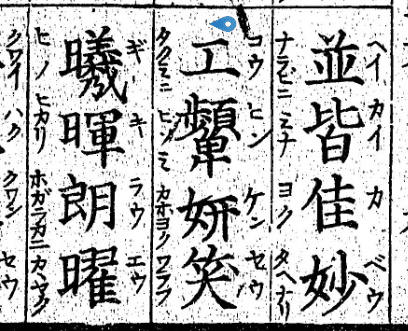 ヘイ カイ カ ベウ
並皆佳妙
ナラビニ ミナ ヨク タヘナリ
コウ ヒン ケン セウ
工顰妍笑
タクミニ ヒソミ カホヨク ワラフ
ギ キ ラウ エウ
曦暉朗曜
ヒノ ヒカリ ホガラカニ カヽヤク
クワイ ハク クワン セウ